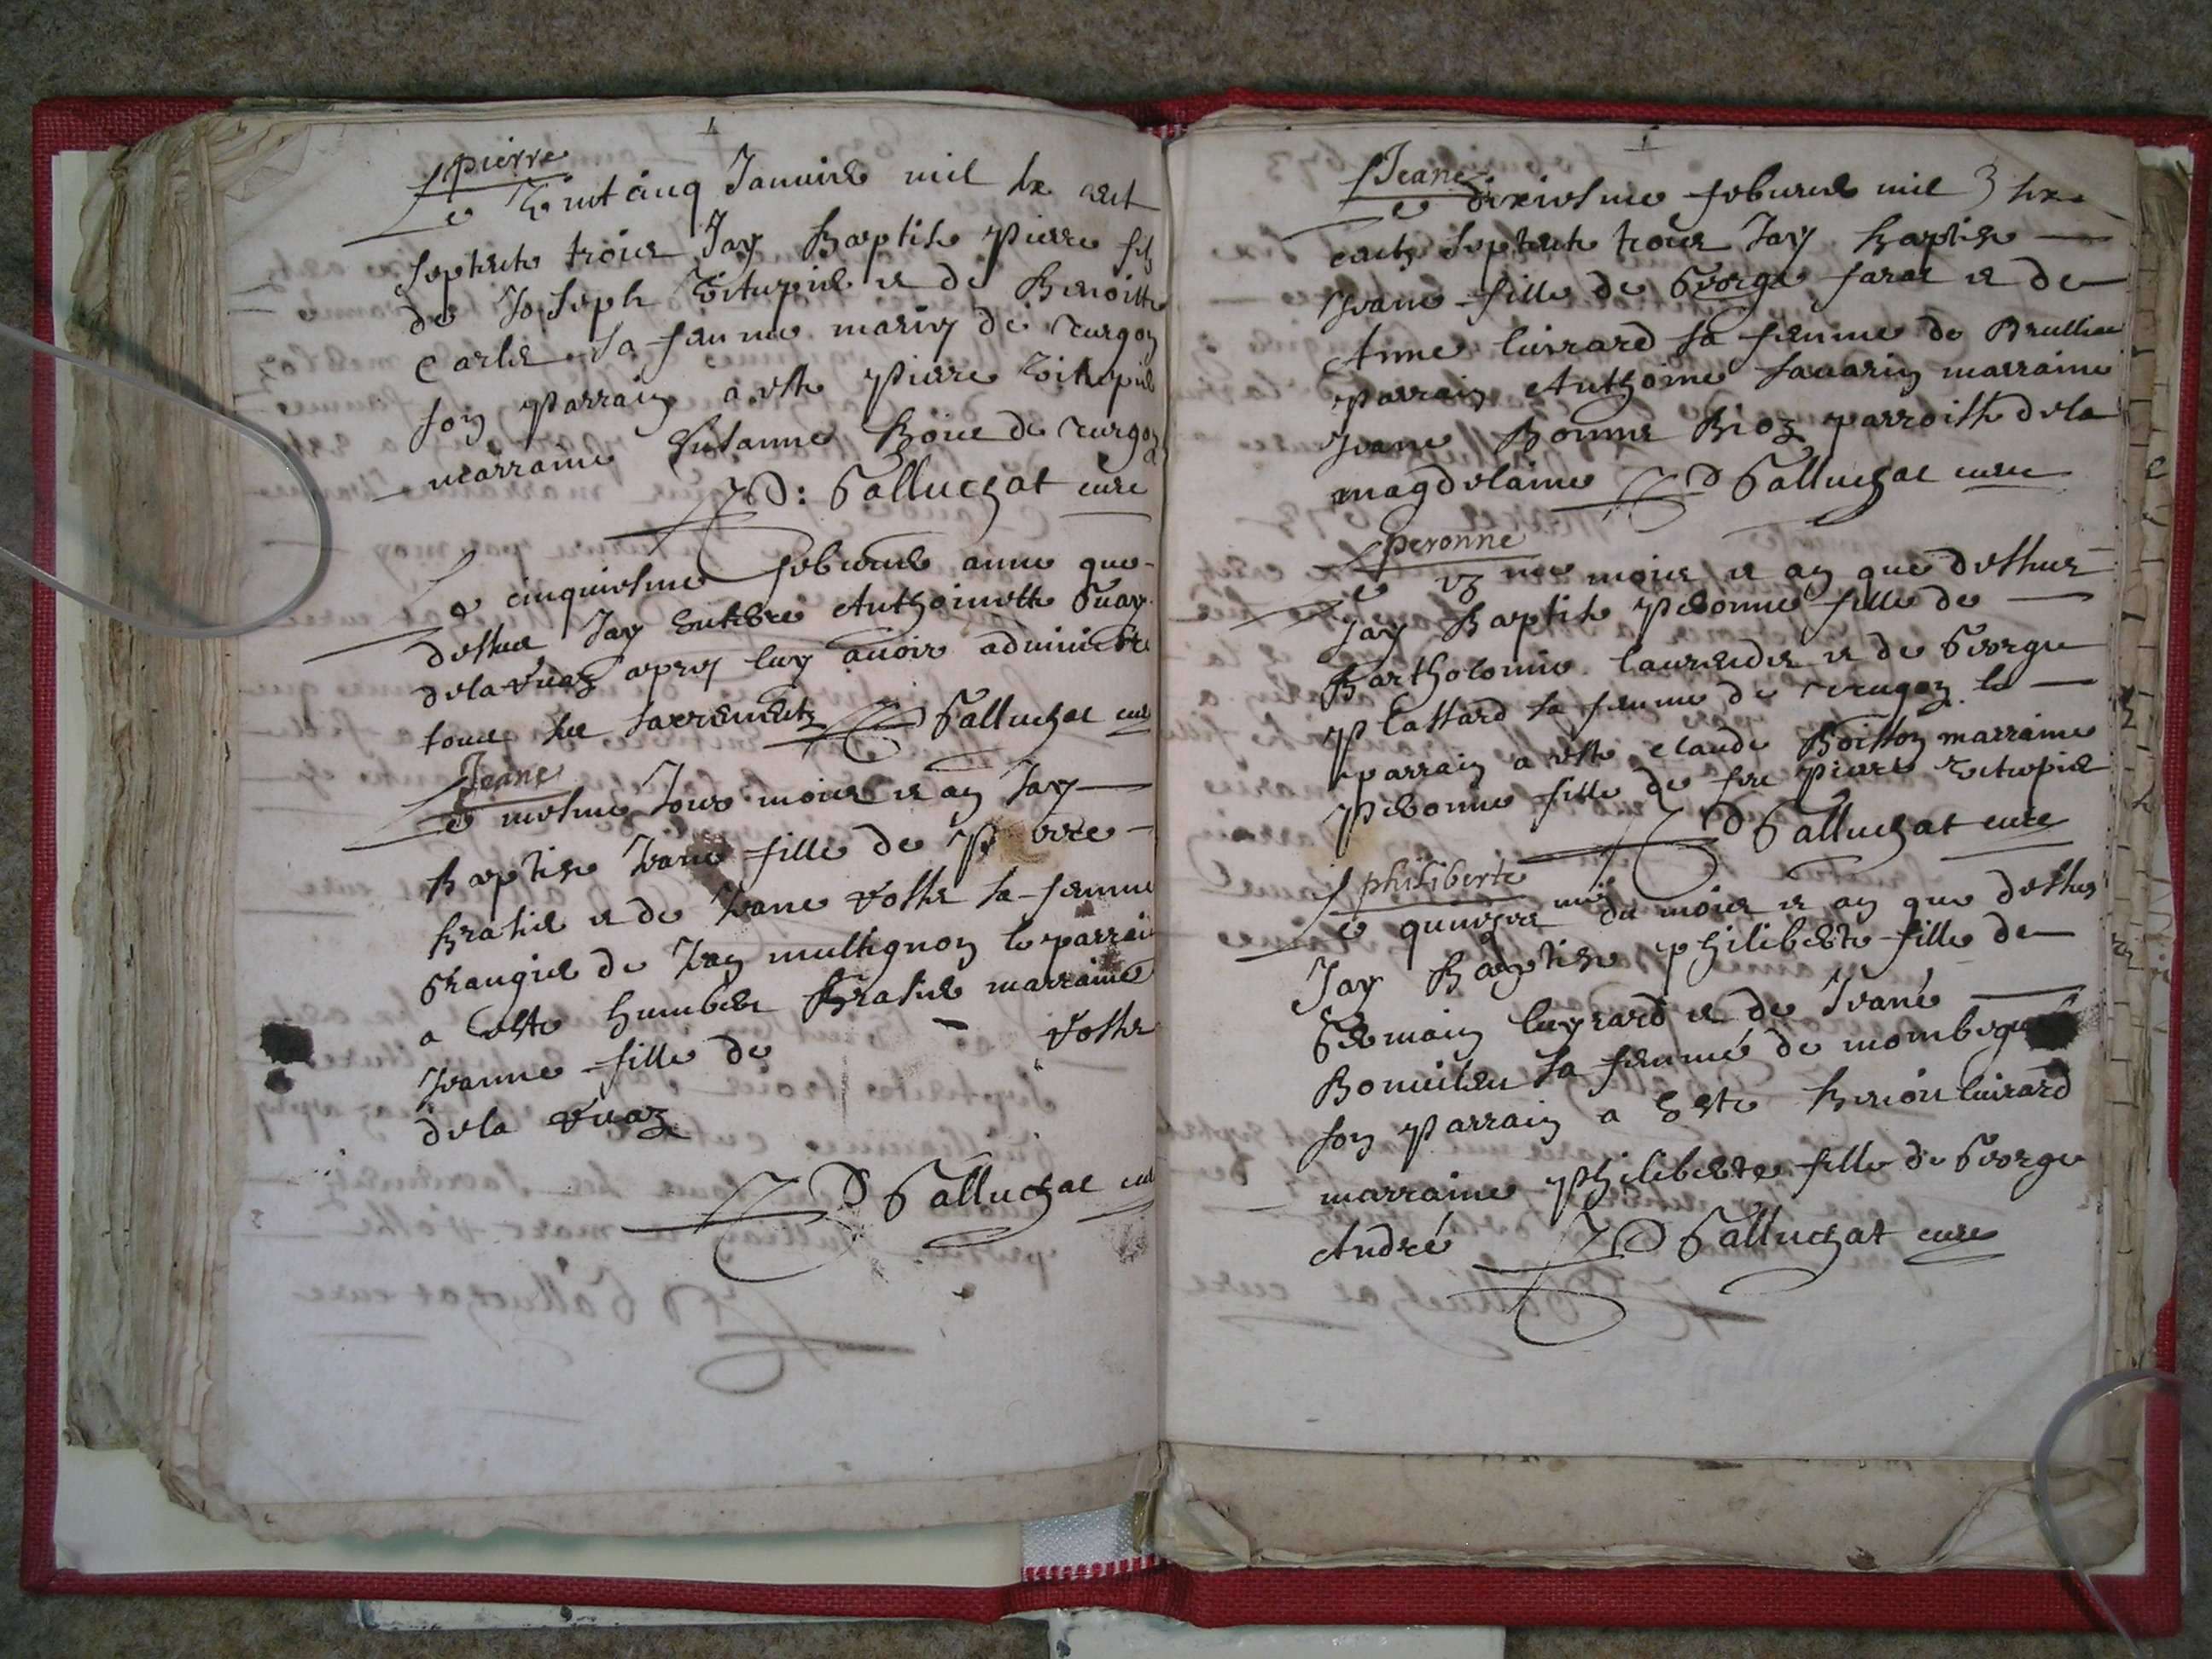 pierre
Le vint cinq Januier mil six cent
septente trois Jay Baptise Pierre filz
de Joseph et de Benoitte
Carles sa femme mariez de Turgon
son Parrain a este Pierre
marraine Susanne Boue de Turgon
D: Galluchat cure
Le cinquiesme feburier anne que
dessus Jay enterre Anthoinette Guay
dela vuaz apres luy auoir administre
tous les sacrements D Galluchat cure
Jeane
Le mesme Jour mois et an Jay
baptise Jeane fille de Pierre
Brasier et de Jeane Vosse sa femme
Grangier de le parrain
a este humbert Brasier marraine
Jeanne fille de Vosse
dela vuaz
D Galluchat cure
Jeane
Le dixiesme feburier mil six
cents septente trois Jay baptise
Jeane fille de George faras et de
Anne liurard sa femme de
Parrain Anthoine sauarin marraine
Jeane Bonne Bioz parroisse dela
magdelaine D Galluchat cure
peronne
Le mois et an que dessus
Jay Baptise Peronne fille de
Bartholomie et de George
Plassard sa femme de le
parrain a este claude Boisson marraine
Peronne fille de feu Pierre
D Galluchat cure
philiberte
Le quinziesme du mois et an que dessus
Jay Baptise philiberte fille de
Germain luyrard et de Jeane
sa femme de
son Parrain a este Benoit liurard
marraine Philiberte fille de George
André D Galluchat cure